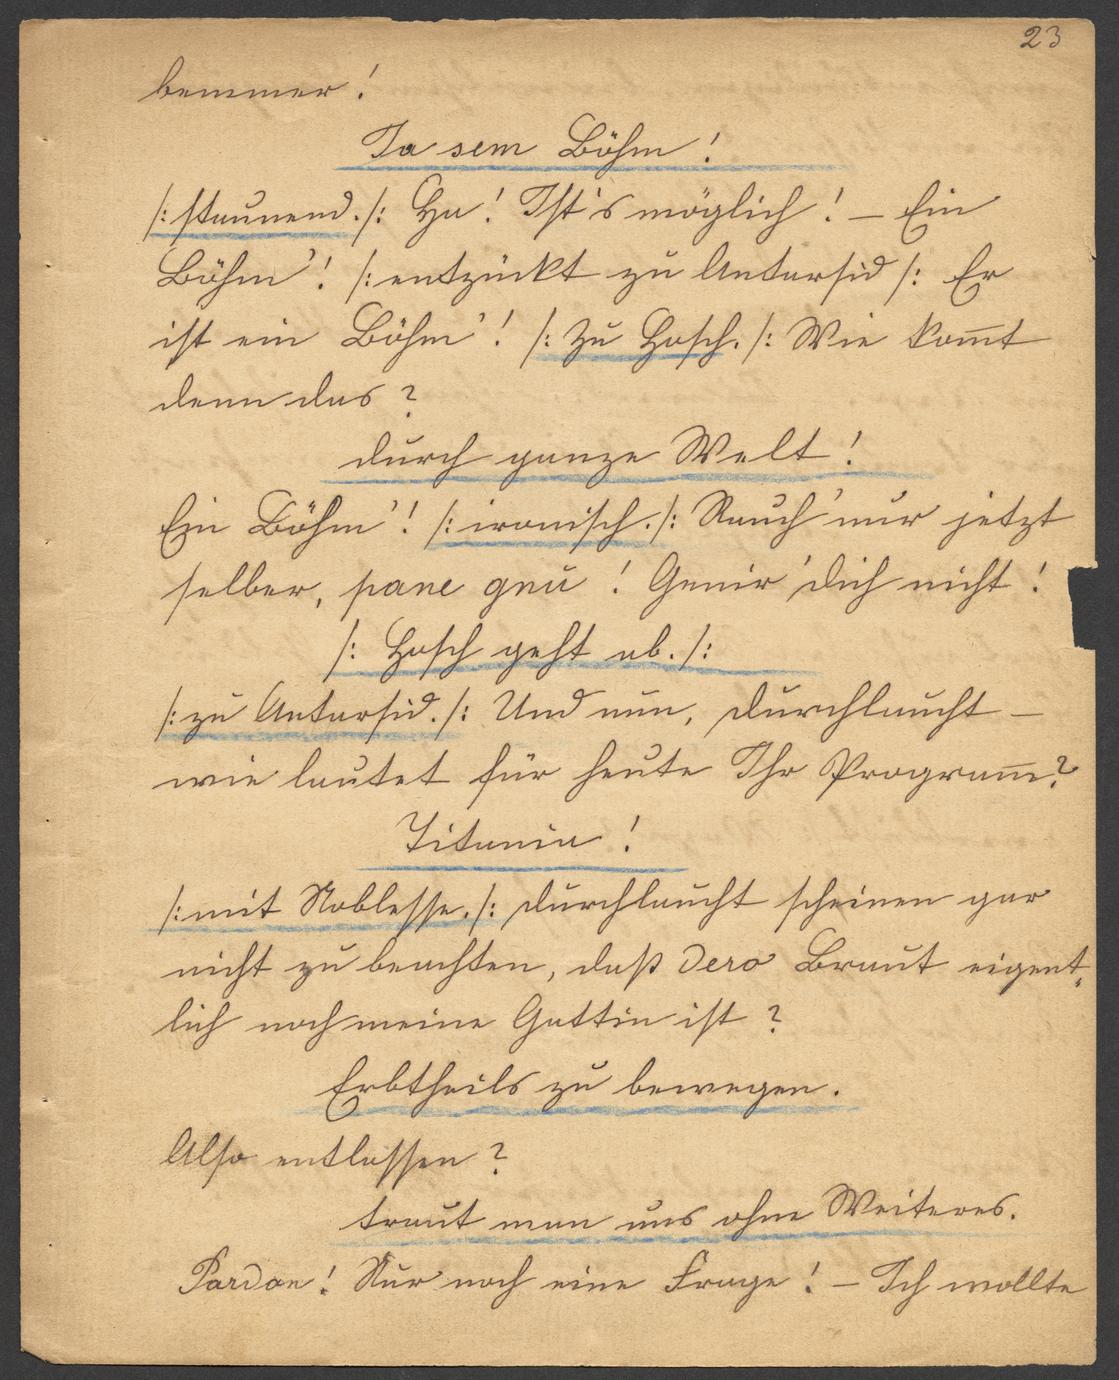 23
bemmer!
Ja sem Böhm!
/: staunend. /: Ha! Ist's möglich! — Ein
Böhm'! /: entzückt zu Antarsid /: Er
ist ein Böhm'! /: Zu Hosch. /: Wie kom̅t
denn das?
durch ganze Welt!
Ein Böhm'! /: ironisch. /: Rauch' nur jetzt
selber, pane gnu! Genir' dich nicht!
/: Hosch geht ab. /:
/: zu Antarsid. /: Und nun, Durchlaucht —
wie lautet für heute Ihr Program̅?
Titania!
/: mit Noblesse. /: Durchlaucht scheinen gar
nicht zu beachten, daß Dero Braut eigent„
lich noch meine Gattin ist?
Erbtheils zu bewegen.
Also entlassen?
traut man uns ohne Weiteres.
Pardon! Nur noch eine Frage! — Ich wollte